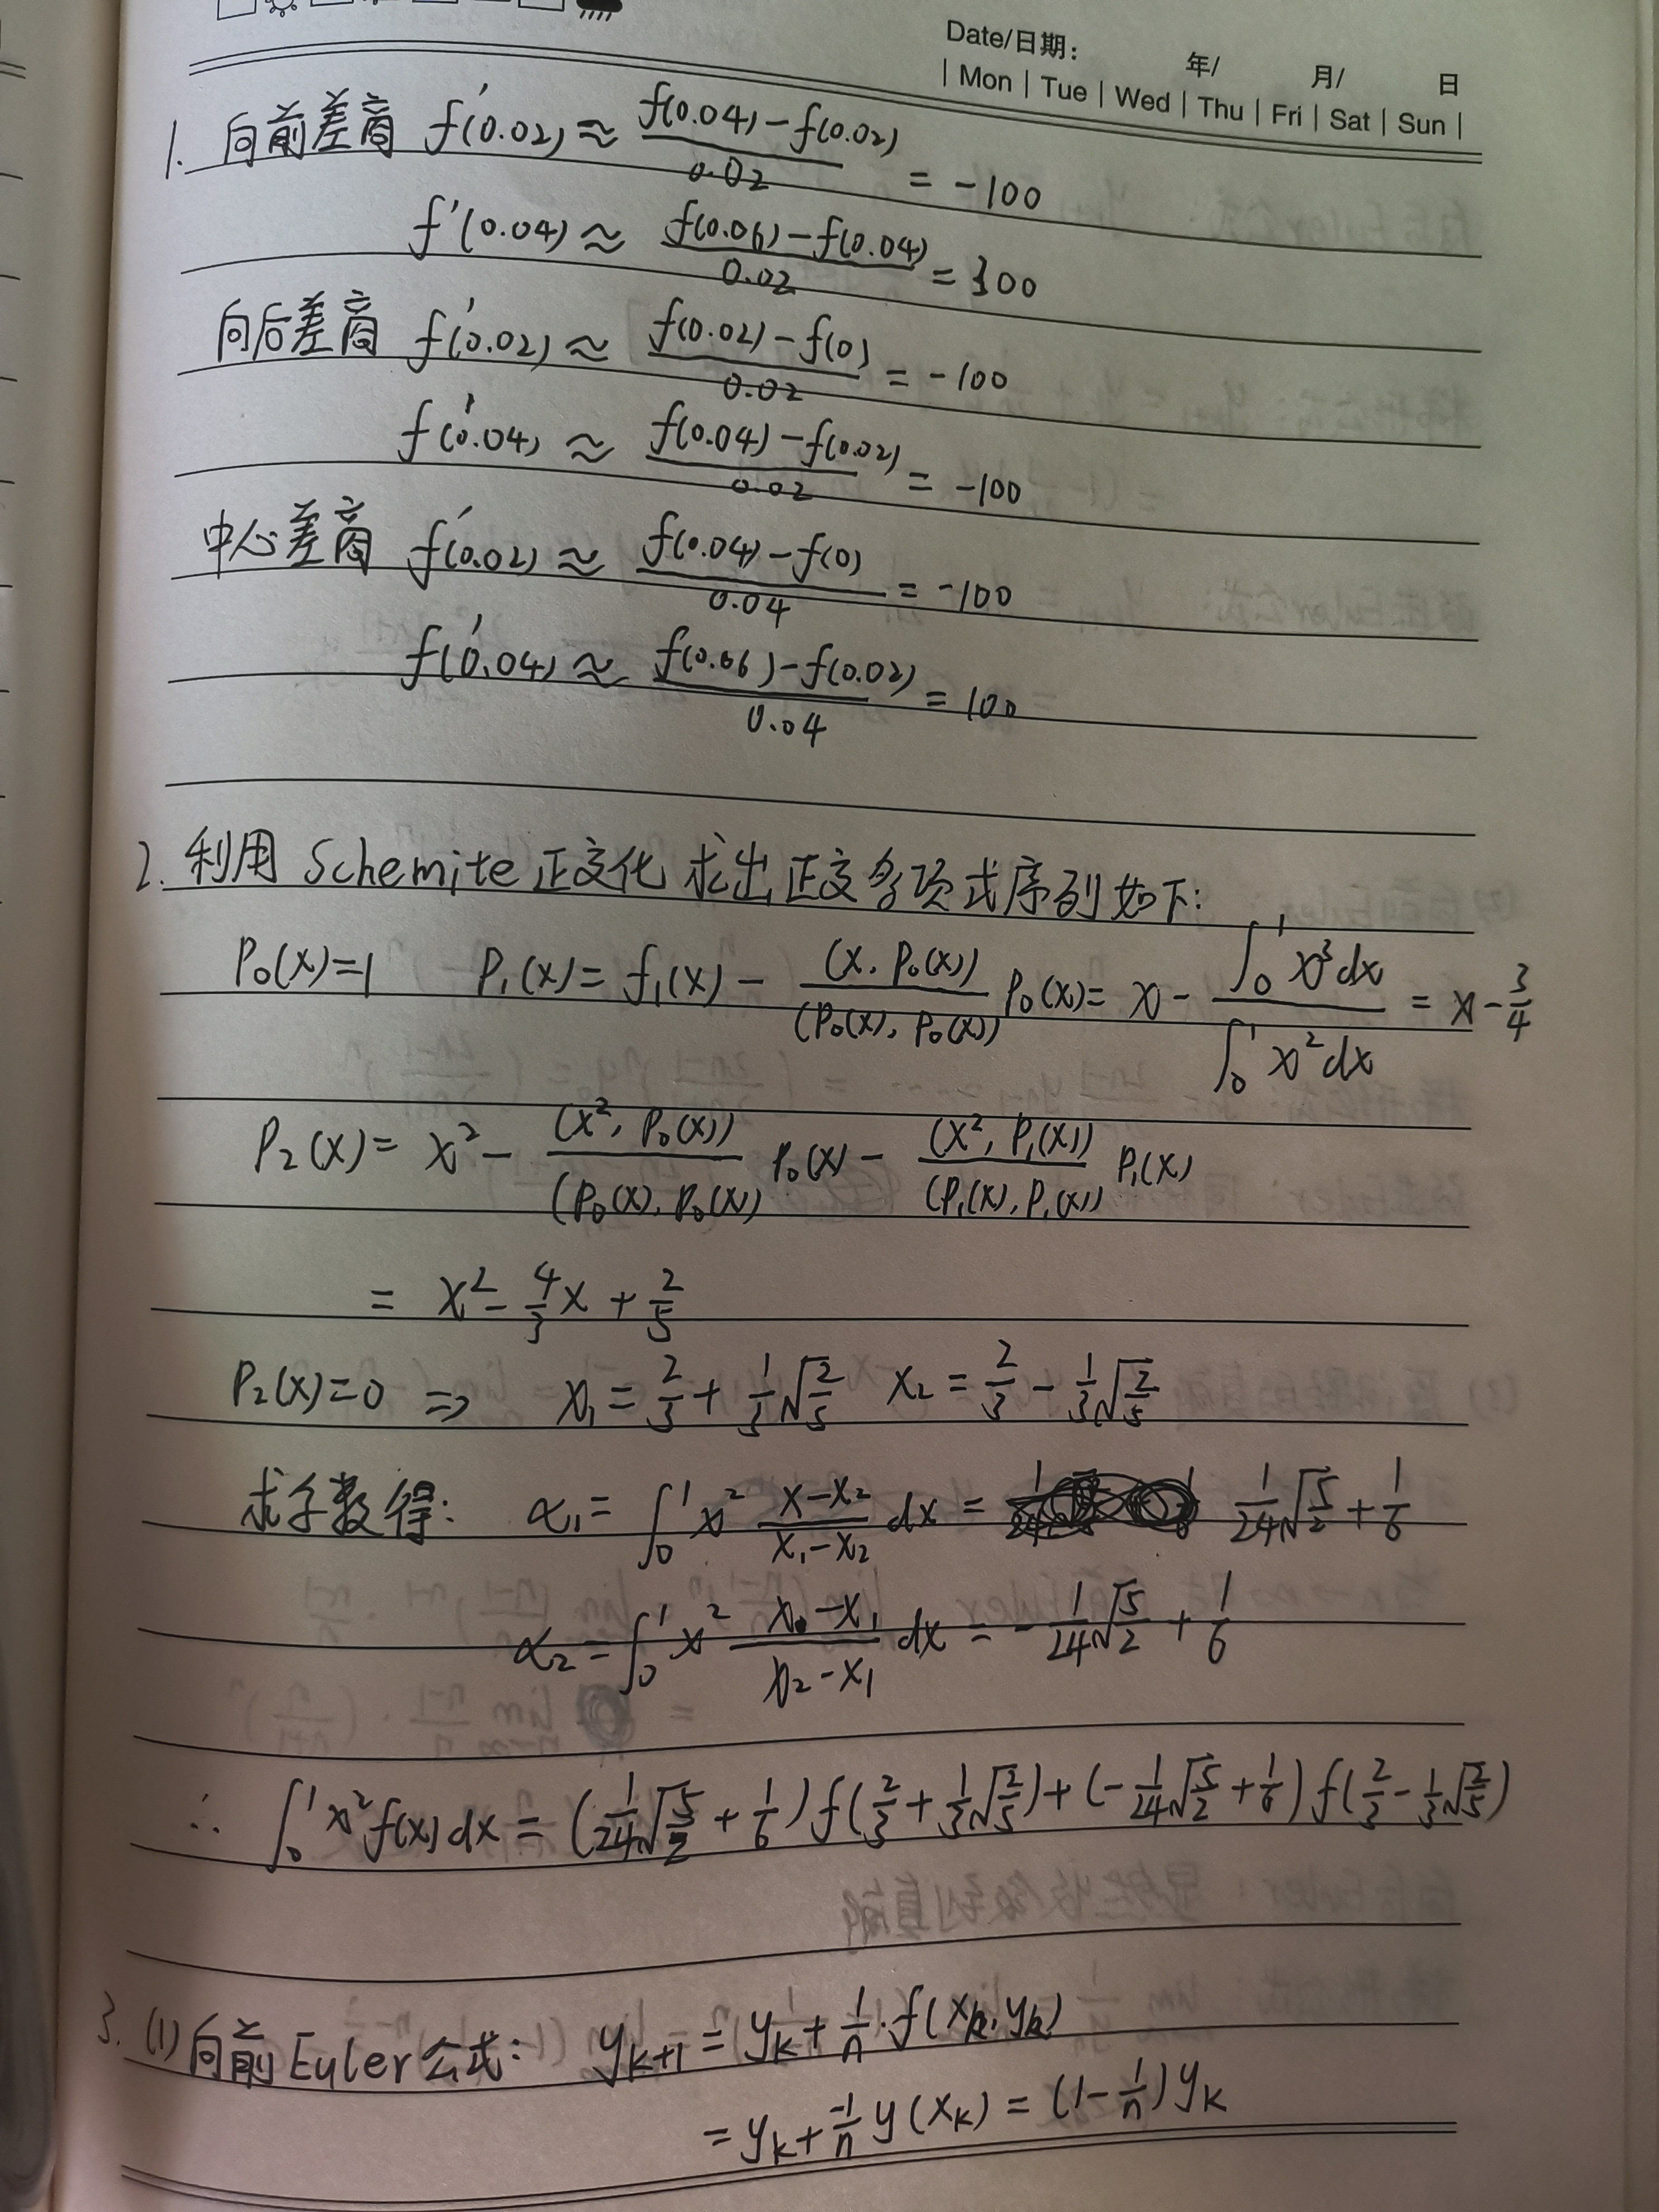 Date/日期: 年/ 月/ 日
| Mon | Tue | Wed | Thu | Fri | Sat | Sun |
1. 向前差商 f'(0.02) ≈ (f(0.04)-f(0.02))/0.02 = -100
f'(0.04) ≈ (f(0.06)-f(0.04))/0.02 = 300
向后差商 f'(0.02) ≈ (f(0.02)-f(0))/0.02 = -100
f'(0.04) ≈ (f(0.04)-f(0.02))/0.02 = -100
中心差商 f'(0.02) ≈ (f(0.04)-f(0))/0.04 = -100
f'(0.04) ≈ (f(0.06)-f(0.02))/0.04 = 100
2. 利用 Schemite 正交化 求出正交多项式序列如下:
P₀(x)=1 P₁(x)= f₁(x) - (x, P₀(x))/(P₀(x), P₀(x)) P₀(x) = x - ∫₀¹x³dx/∫₀¹x²dx = x-3/4
P₂(x) = x² - (x², P₀(x))/(P₀(x), P₀(x)) P₀(x) - (x², P₁(x))/(P₁(x), P₁(x)) P₁(x)
= x² - 4/3 x + 2/5
P₂(x)=0 ⇒ x₁ = 2/3 + 1/3√(2/5) x₂ = 2/3 - 1/3√(2/5)
求子数得: α₁ = ∫₀¹ x² (x-x₂)/(x₁-x₂) dx = 1/24√(5/2) + 1/6
α₂ = ∫₀¹ x² (x-x₁)/(x₂-x₁) dx = -1/24√(5/2) + 1/6
∴ ∫₀¹x²f(x)dx = (1/24√(5/2) + 1/6) f(2/3 + 1/3√(2/5)) + (-1/24√(5/2) + 1/6) f(2/3 - 1/3√(2/5))
3. (1) 向前Euler公式: yₖ₊₁ = yₖ + 1/n · f(xₖ, yₖ)
= yₖ + -1/n y(xₖ) = (1-1/n)yₖ